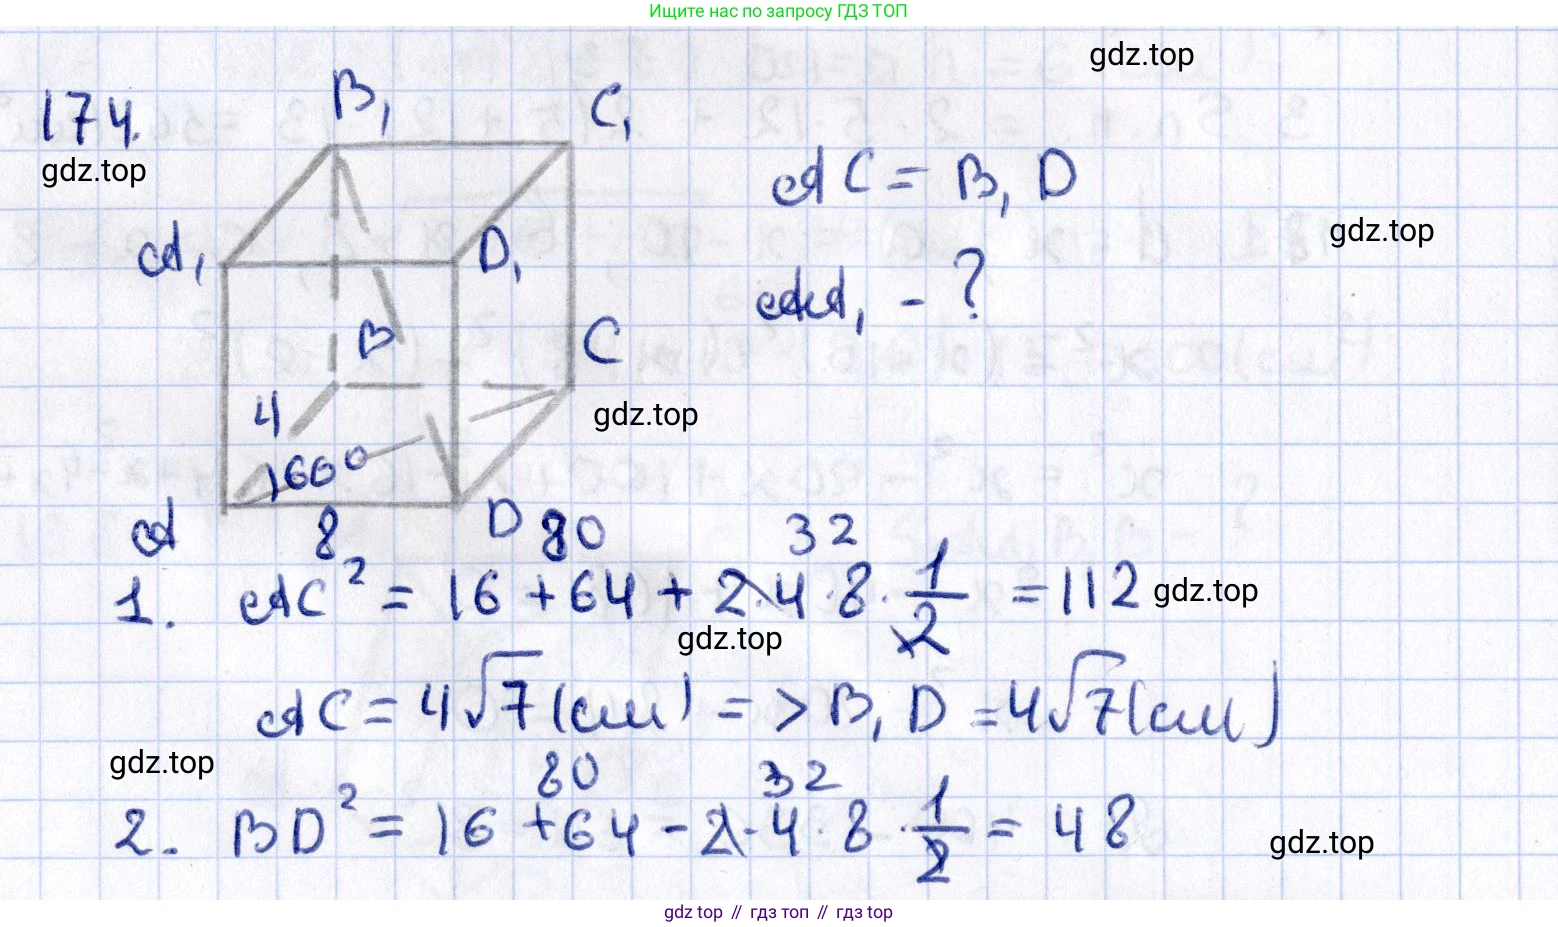 Ищите нас по запросу ГДЗ ТОП
gdz.top
174.
gdz.top
B₁
C₁
AC = B₁D
gdz.top
A₁
D₁
AA₁ - ?
B
C
4
gdz.top
60°
A
8
D
80
32
1. AC² = 16 + 64 + 2·4·8·1/2 = 112
gdz.top
gdz.top
AC = 4√7 (см) => B₁D = 4√7 (см)
gdz.top
80
32
2. BD² = 16 + 64 - 2·4·8·1/2 = 48
gdz.top
gdz top // гдз топ // гдз top